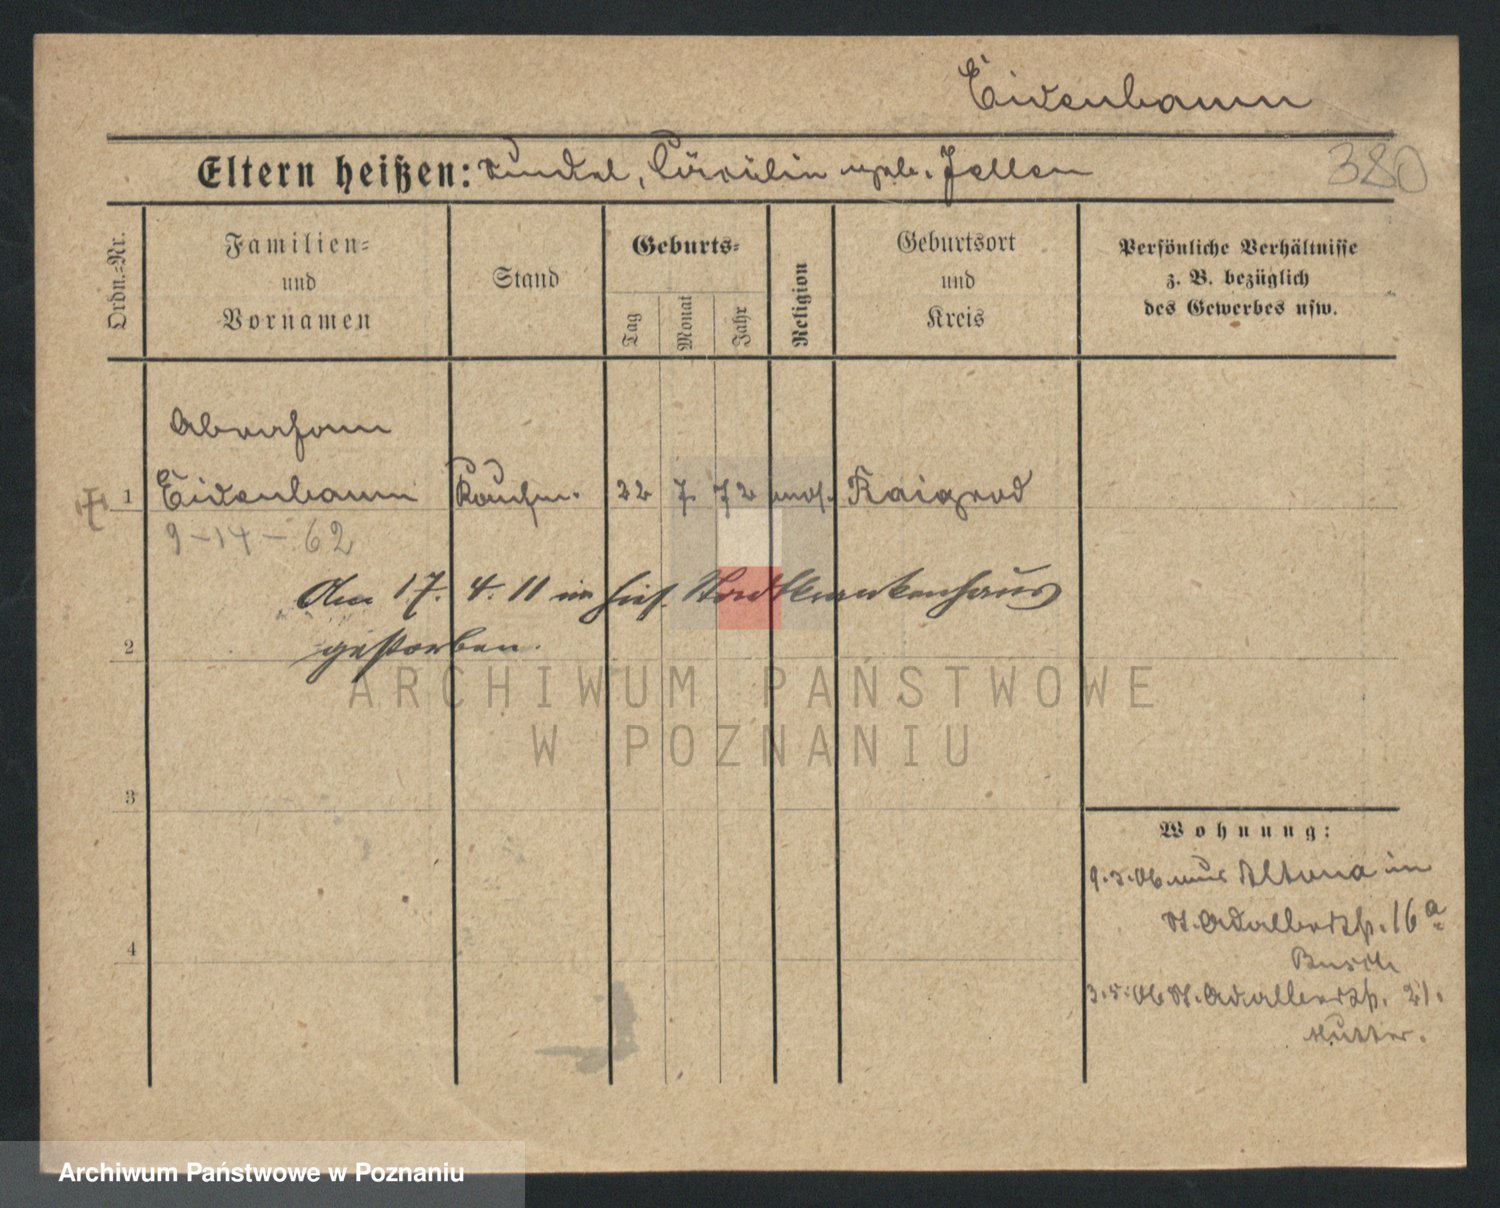 Eidenbaum
380
Eltern heißen: Mendel, Cäcilie geb. Jellen
Ordn.-Nr.
Familien-
und
Vornamen
Stand
Geburts-
Tag
Monat
Jahr
Religion
Geburtsort
und
Kreis
Persönliche Verhältnisse
z. B. bezüglich
des Gewerbes usw.
Abraham
1 Eidenbaum Kaufm. 22 7. 72 mos. Raigrod
9-14-62
Am 17. 4. 11 im hies. Stadtkrankenhaus
2
gestorben.
3
Wohnung:
9.3.06 aus Altona in
St. Adalbertstr. 16a
Busch
4
3.5.06 St. Adalbertstr. 21.
Hutter.
ARCHIWUM PAŃSTWOWE
W POZNANIU
Archiwum Państwowe w Poznaniu